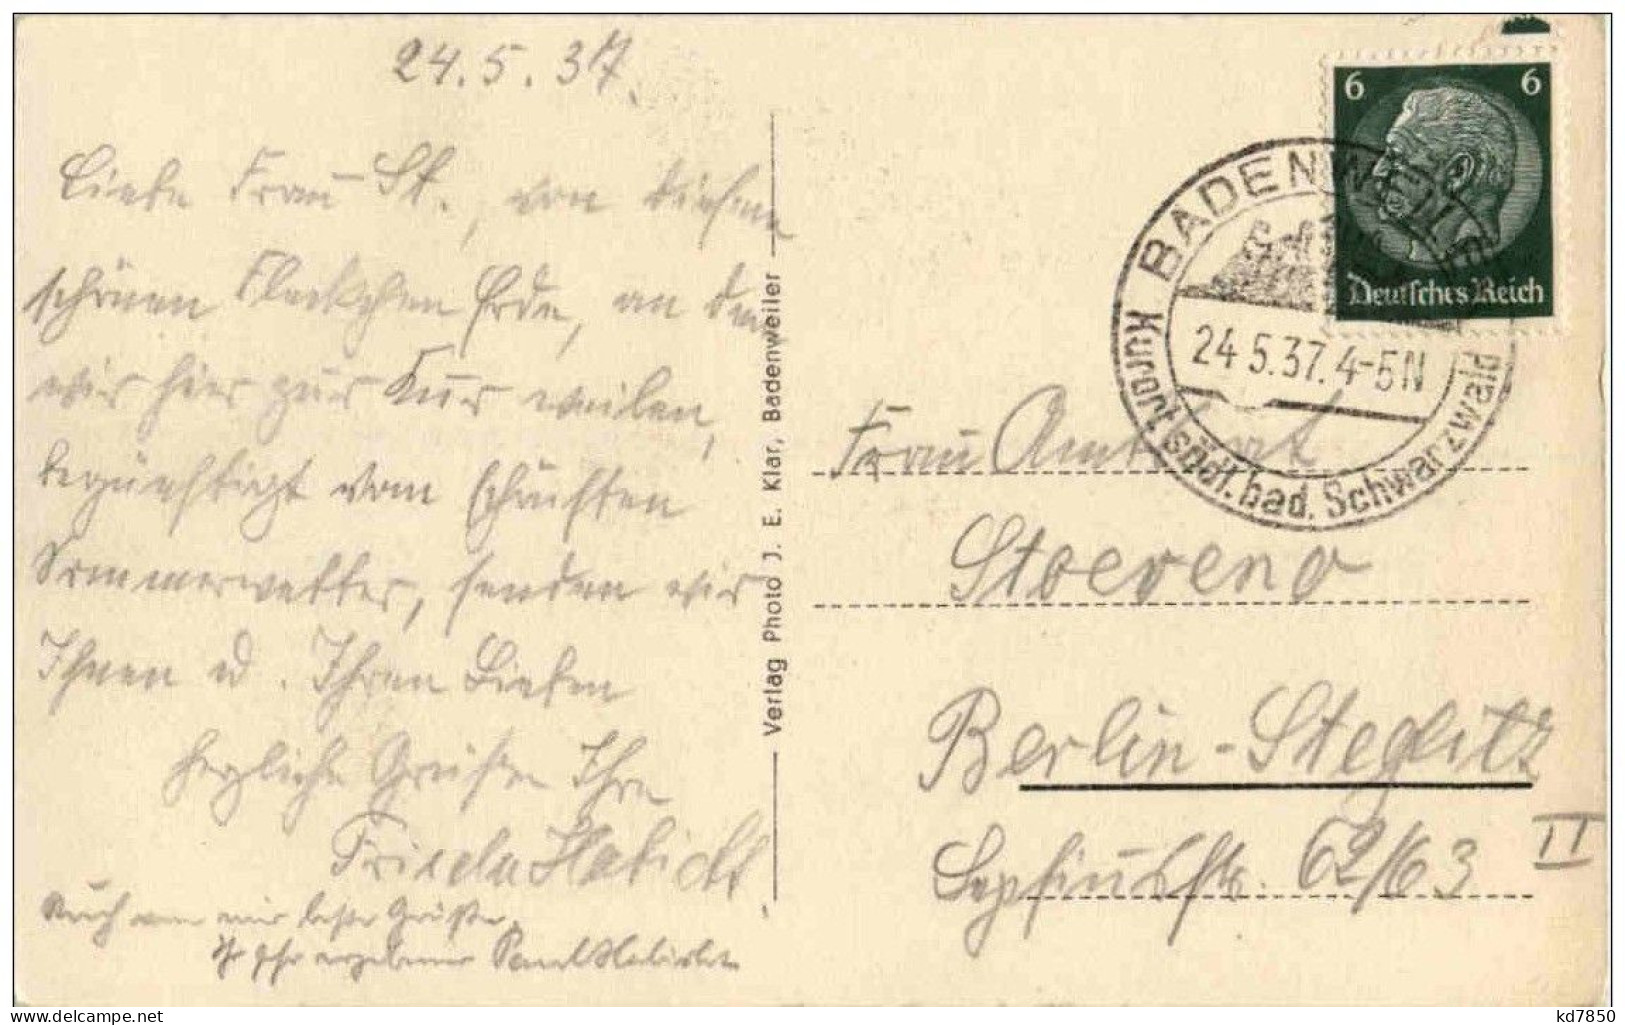 24.5.37.
Liebe Frau St., von diesem
schönen Fleckchen Erde, an dem
wir hier zur Kur weilen,
begünstigt vom schönsten
Sommerwetter, senden wir
Ihnen u. Ihren Lieben
herzliche Grüße Ihre
Frieda Habicht
Auch von mir beste Grüße,
Ihr ergebener Paul Habicht
Verlag Photo J. E. Klar, Badenweiler
6 6
Deutsches Reich
BADENWEILER
24.5.37.4-5N
Kurort südl. bad. Schwarzwald
Frau Amtsrat
Berlin-Steglitz
62/63 II
kd7850